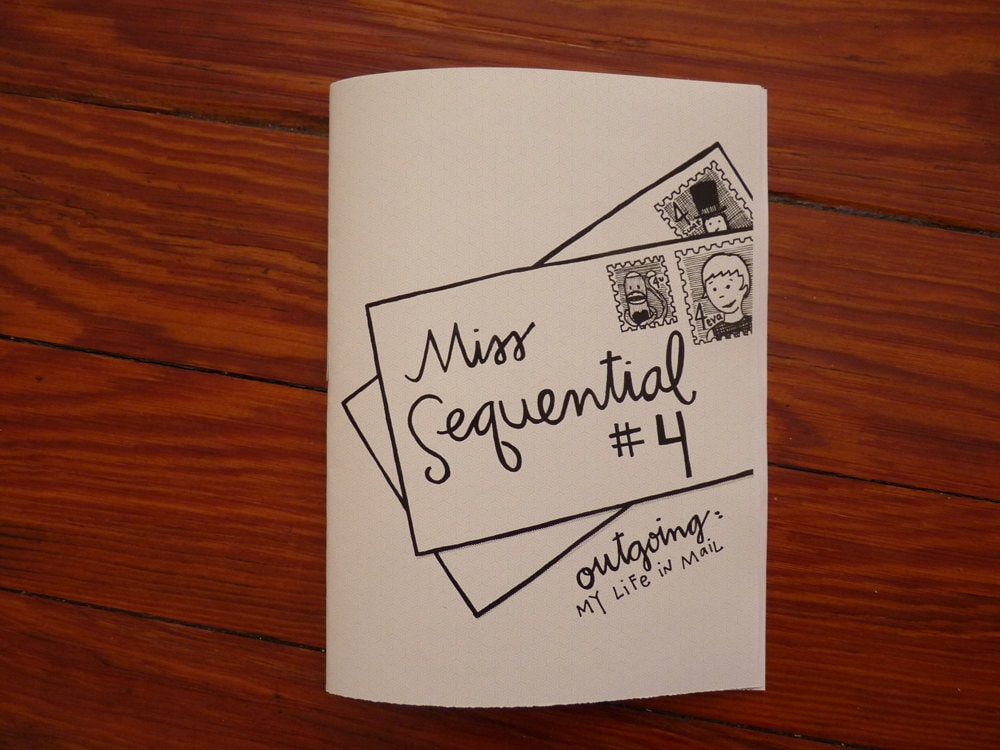 Miss
Sequential
#4
4
4u
4eva
outgoing:
MY LiFe iN MaiL